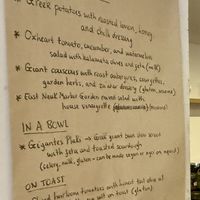 * Greek potatoes with roasted lemon, honey
and chilli dressing
* Oxheart tomato, cucumber, and watermelon
salad with kalamata olives and feta (milk)
* Giant couscous with roast aubergines, courgettes,
garden herbs, and dressing (gluten, sesame)
* East Neuk Market Garden mixed salad with
house vinaigrette (mustard)
IN A BOWL
* Gigantes Plaki → Greek giant bean stew served
with feta and toasted sourdough
(celery, milk, gluten - can be made vegan or again on request)
ON TOAST
heirloom tomatoes with honest toil olive oil
salt on toast (gluten)